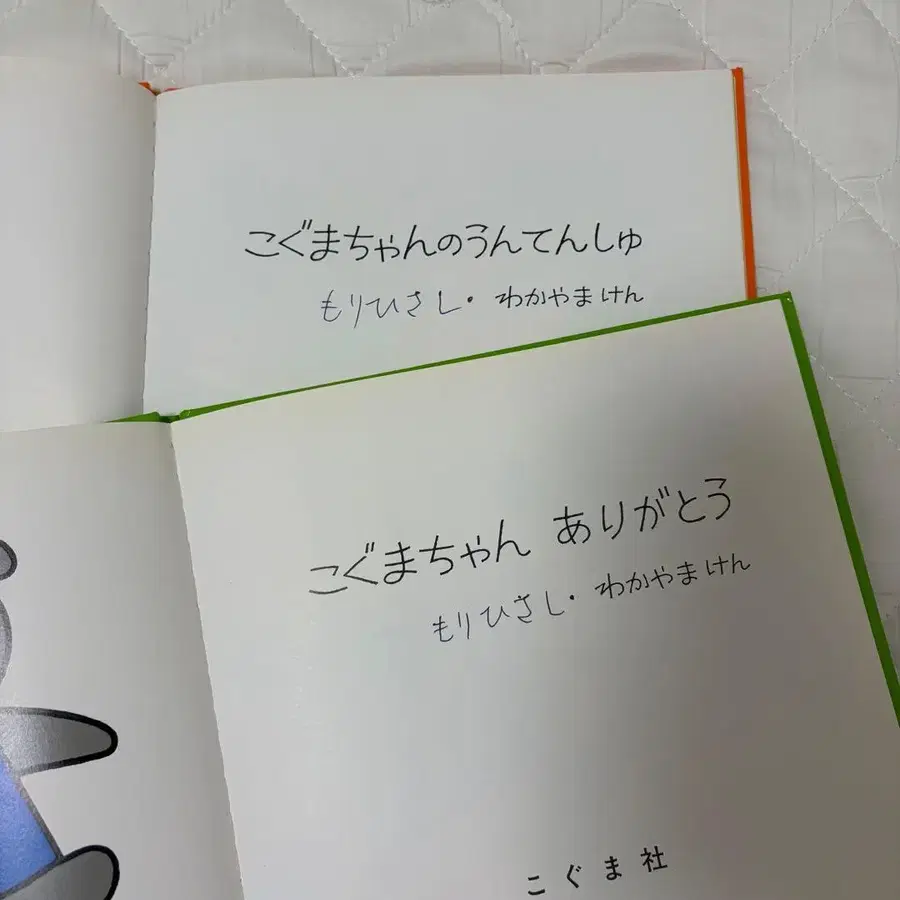 こぐまちゃんのうんてんしゅ
もりひさし・わかやまけん
こぐまちゃん ありがとう
もりひさし・わかやまけん
こぐま社